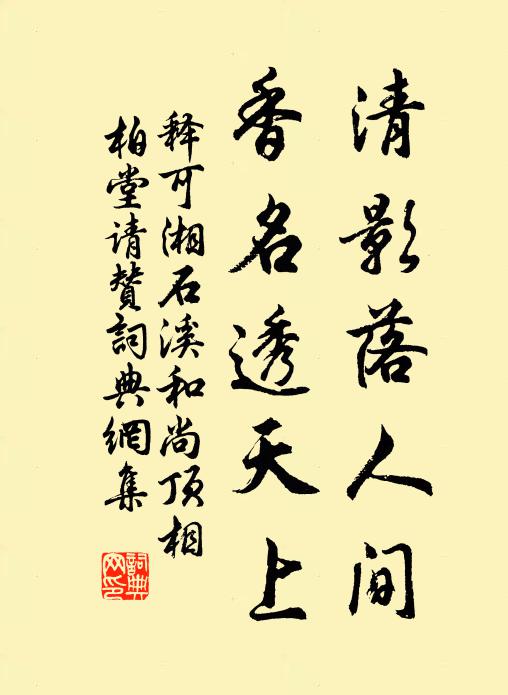 清影落人间
香名透天上
释可湘石溪和尚顶相
柏堂请赞词典網集
詞典網印